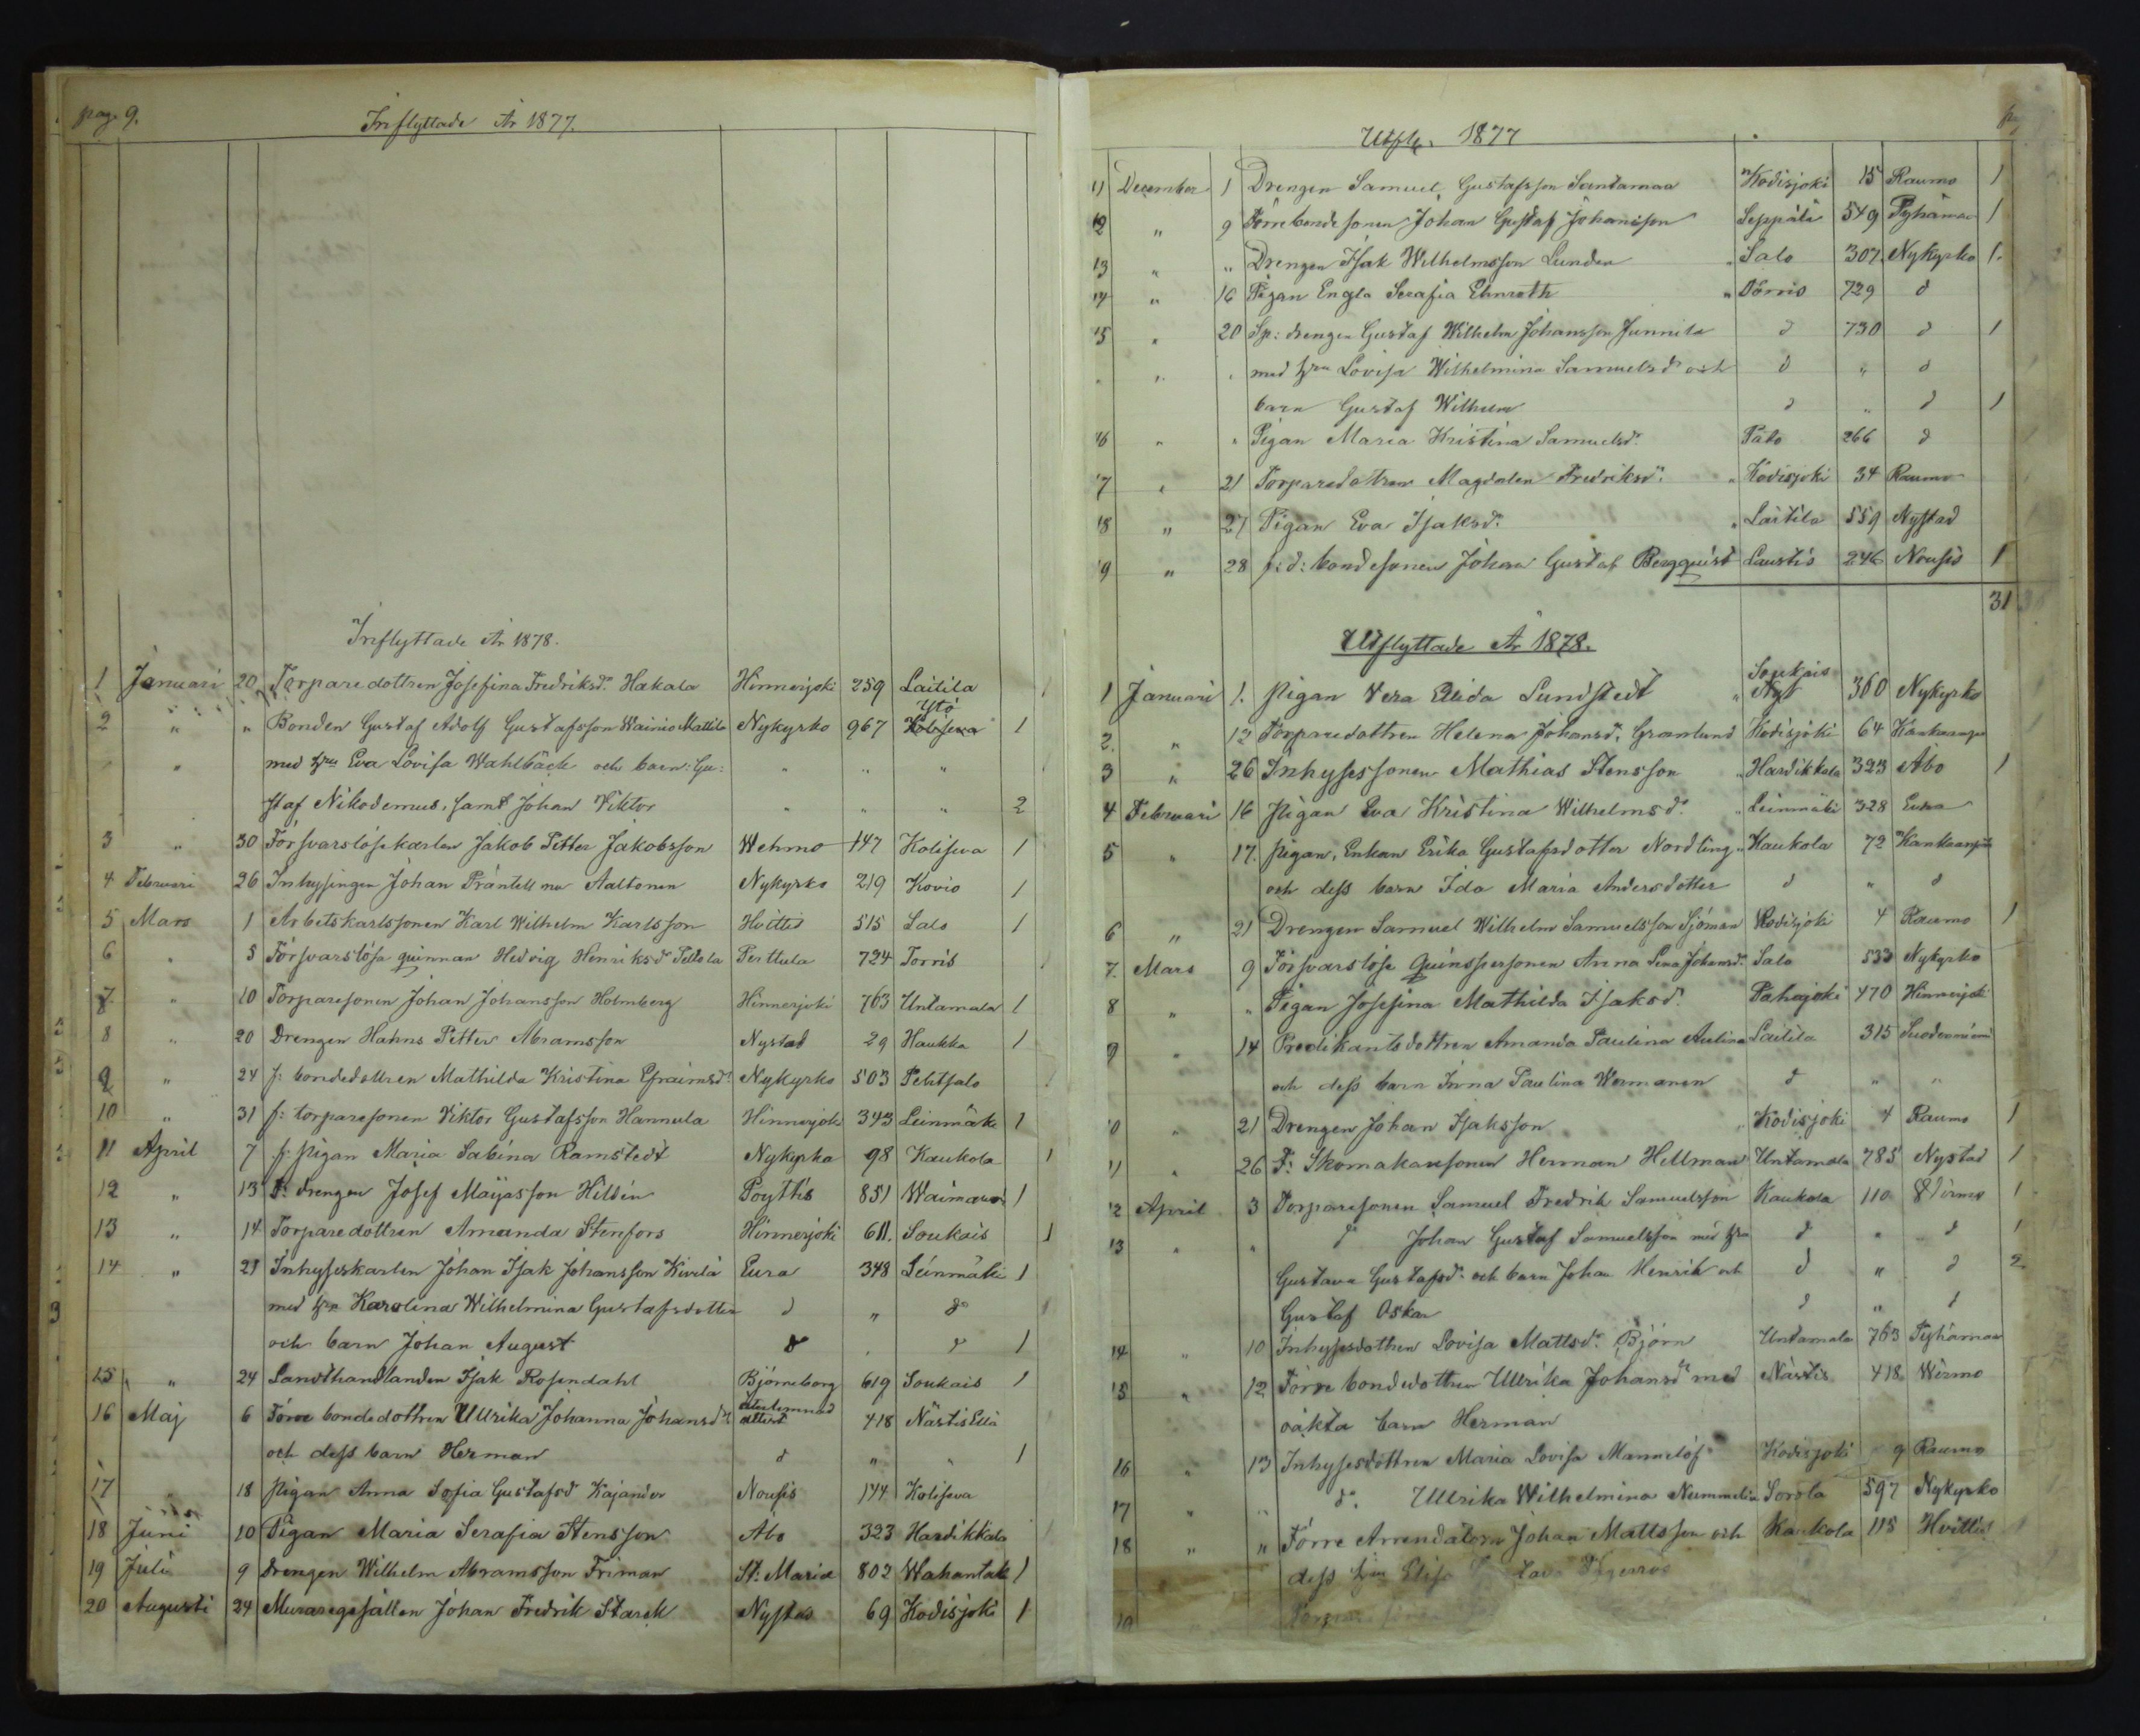 pag. 9.
Inflyttade År 1877.
Inflyttade År 1878.
1 Januari 20 Torparedottren Josefina Fredriksd:r Hakala Hinnerjoki 259 Laitila
2 " " Bonden Gustaf Adolf Gustafsson Wainio Mattila Nykyrko 967 Ytö 1
" med h:u Eva Lovisa Wahlbäck och barn: Gu: " " "
staf Nikodemus, samt Johan Viktor " " " 2
3 " 30 Försvarslöse karlen Jakob Petter Jakobsson Wehmo 147 Koliseva 1
4 Februari 26 Inhysingen Johan Präntell nu Aaltonen Nykyrko 219 Kovio 1
5 Mars 1 Arbetskarlssonen Karl Wilhelm Karlsson Hvittis 515 Salo 1
6 " 5 Försvarslösa qvinnan Hedvig Henriksd:r Pellola Perttula 724 Torris
7 " 10 Torparesonen Johan Johansson Holmberg Hinnerjoki 763 Untamala 1
8 " 20 Drengen Hahns Petter Abramsson Nystad 29 Haukka 1
9 " 24 f: bondedottren Mathilda Kristina Efraimsd:r Nykyrko 503 Pehtsalo
10 " 31 f: torparesonen Viktor Gustafsson Hannula Hinnerjoki 343 Leinmäki 1
11 April 7 f: pigan Maria Sabina Ramstedt Nykyrko 98 Kaukola 1
12 " 13 F: drengen Josef Maijasson Hildén Pöyttis 851 1
13 " 14 Torparedottren Amanda Stenfors Hinnerjoki 611. Soukais 1
14 " 21 Inhyseskarlen Johan Isak Johansson Kivilä Eura 348 Leinmäki 1
med h:u Karolina Wilhelmina Gustafsdotter d " d:o
och barn Johan August d " d 1
15 " 24 Landthandlanden Isak Rosendahl Björneborg 619 Soukais 1
16 Maj 6 Förre bondedottren Ullrika Johanna Johansd:r återlemnad attest 418 Nästis Eklä
och dess barn Herman d " " 1
17 18 Pigan Anna Sofia Gustafsd Kajander Nousis 144 Koliseva
18 Juni 10 Pigan Maria Serafia Stensson Åbo 323 Hardikkala
19 Juli 9 Drengen Wilhelm Abramsson Friman St: Maria 802 Wahantaka 1
20 Augusti 24 Muraregesällen Johan Fredrik Starck Nystad 69 Kodisjoki 1
Utfly. 1877
11 December 1 Drengen Samuel Gustafsson Santamaa Kodisjoki 15 Raumo 1
12 " 9 Förre bondesonen Johan Gustaf Johansson Seppälä 549 Pyhämaa 1
13 " " Drengen Isak Wilhelmsson Lunden " Salo 307 Nykyrko 1
14 " 16 Pigan Engla Serafia Ehnroth " Torris 729 d
15 " 20 Sp: drengen Gustaf Wilhelm Johansson Junnila d 730 d 1
" " " med h:u Lovisa Wilhelmina Samuelsd:r och d " d
barn Gustaf Wilhelm d " d 1
16 " " Pigan Maria Kristina Samuelsd:r Palo 266 d
17 " 21 Torparedottren Magdalen Fredriksd:r " Kodisjoki 34 Raumo
18 " 27 Pigan Eva Isaksd:r " Laitila 559 Nystad
19 " 28 f: d: bondesonen Johan Gustaf Bergquist Laustis 246 Nousis 1
31
Utflyttade År 1878.
1 Januari 1. Pigan Vera Elida Lundstedt " Soukais 360 Nykyrko
2. " 12 Torparedottren Helena Johansd:r Granlund Kodisjoki 64
3 " 26 Inhysessonen Mathias Stensson " Hardikkala 323 Åbo 1
4 Februari 16 Pigan Eva Kristina Wilhelmsd:r " Leinmäki 328 Eura
5 " 17. Pigan, Enkan Erika Gustafsdotter Nordling " Kaukola 72 Kankaanpää
och dess barn Ida Maria Andersdotter d " d
6 " 21 Drengen Samuel Wilhelm Samuelsson Sjöman Kodisjoki 4 Raumo 1
7. Mars 9 Försvarslösa Qvinspersonen Anna Lena Johansd:r Salo 533 Nykyrko
8 " " Pigan Josefina Mathilda Isaksd:r Pahojoki 470 Hinnerjoki
9 " 14 Predikantsdottren Amanda Paulina Aulina Laitila 315 Suodenniemi
och dess barn Inna Paulina Wermanen d " "
10 " 21 Drengen Johan Isaksson " Kodisjoki 4 Raumo 1
11 " 26 F: Skomakaresonen Herman Hellman Untamala 785 Nystad 1
12 April 3 Torparesonen Samuel Fredrik Samuelsson Kaukola 110 Virmo 1
13 " " d:o Johan Gustaf Samuelsson med h:u d " d 1
Gustava Gustafsd:r och barn Johan Henrik och d " d 2
Gustaf Oskar d " d
14 " 10 Inhysesdottren Lovisa Mattsd:r Björn Untamala 763 Pyhämaa
15 " 12 Förre bondedottren Ullrika Johansd:r med Nästis 418 Wirmo
oäkta barn Herman
16 " 13 Inhysesdottren Maria Lovisa Mannelöf Kodisjoki 9 Raumo
17 " " d:o Ullrika Wilhelmina Nummelin Sorola 597 Nykyrko
18 " " Förre Arrendatorn Johan Mattsson och Kaukola 115 Hvittis
dess h:u Elisa
19